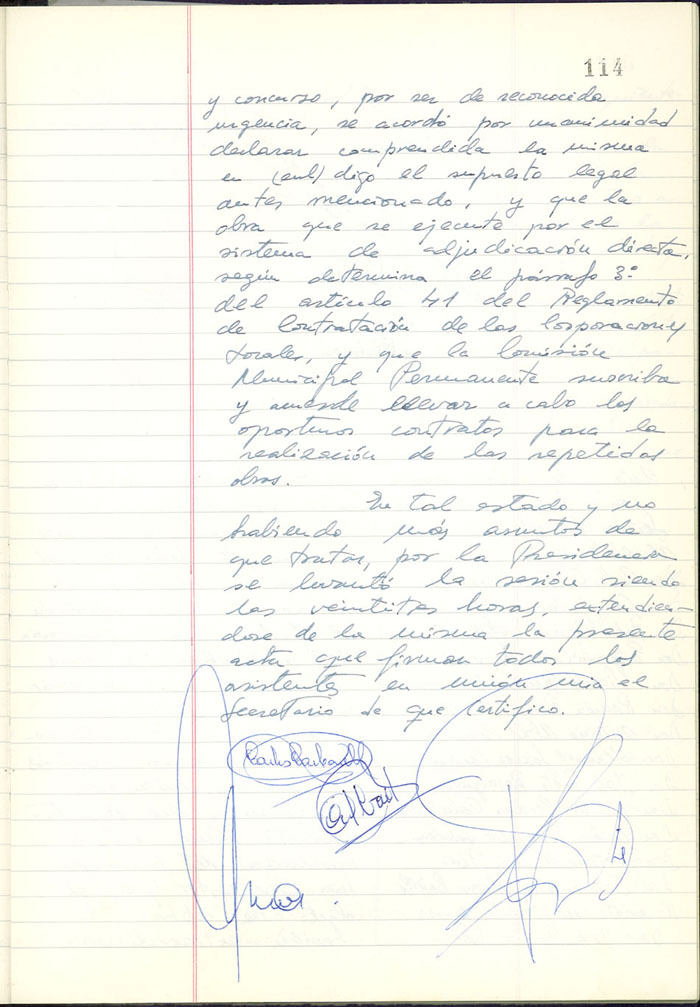 114
y concurso, por ser de reconocida
urgencia, se acordó por unanimidad
declarar comprendida la misma
en digo el supuesto legal
antes mencionado, y que la
obra que se ejecute por el
sistema de adjudicación directa,
según determina el párrafo 3º
del artículo 41 del Reglamento
de Contratación de las Corporaciones
Locales, y que la Comisión
Municipal Permanente suscriba
y acuerde llevar a cabo los
oportunos contratos para la
realización de las repetidas
obras.
En tal estado y no
habiendo más asuntos de
que tratar, por la Presidencia
se levantó la sesión siendo
las veintitres horas, extendien-
dose de la misma la presente
acta que firman todos los
asistentes en unión mia el
Secretario de que certifico.